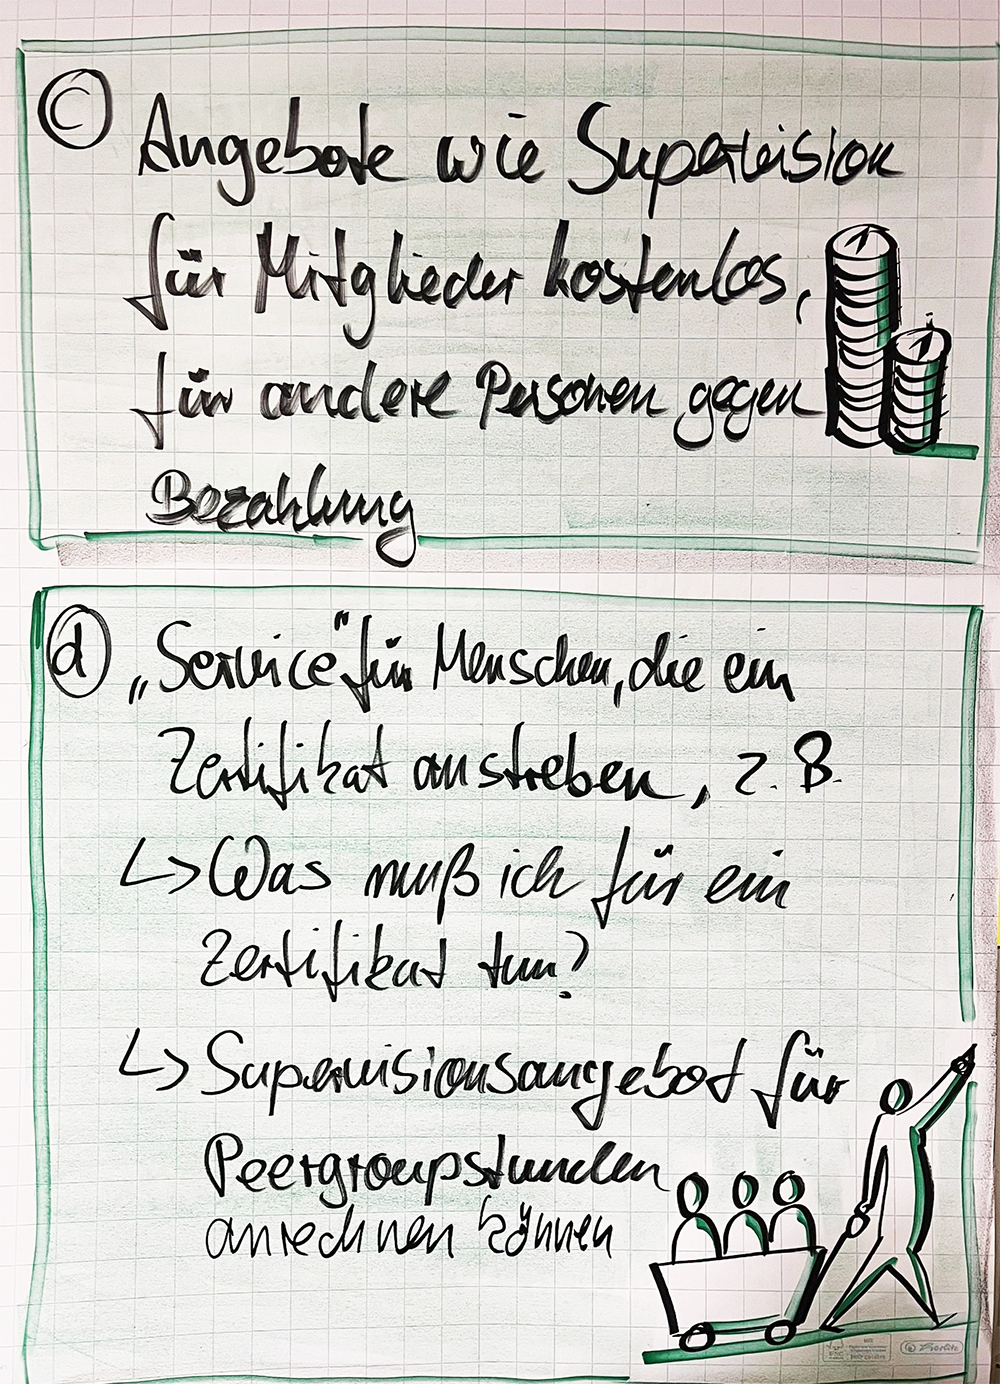 c
Angebote wie Supervision
für Mitglieder kostenlos,
für andere Personen gegen
Bezahlung
d
„Service“ für Menschen, die ein
Zertifikat anstreben, z.B.
↳ Was muß ich für ein
Zertifikat tun?
↳ Supervisionsangebot für
Peergroupstunden
anrechnen können